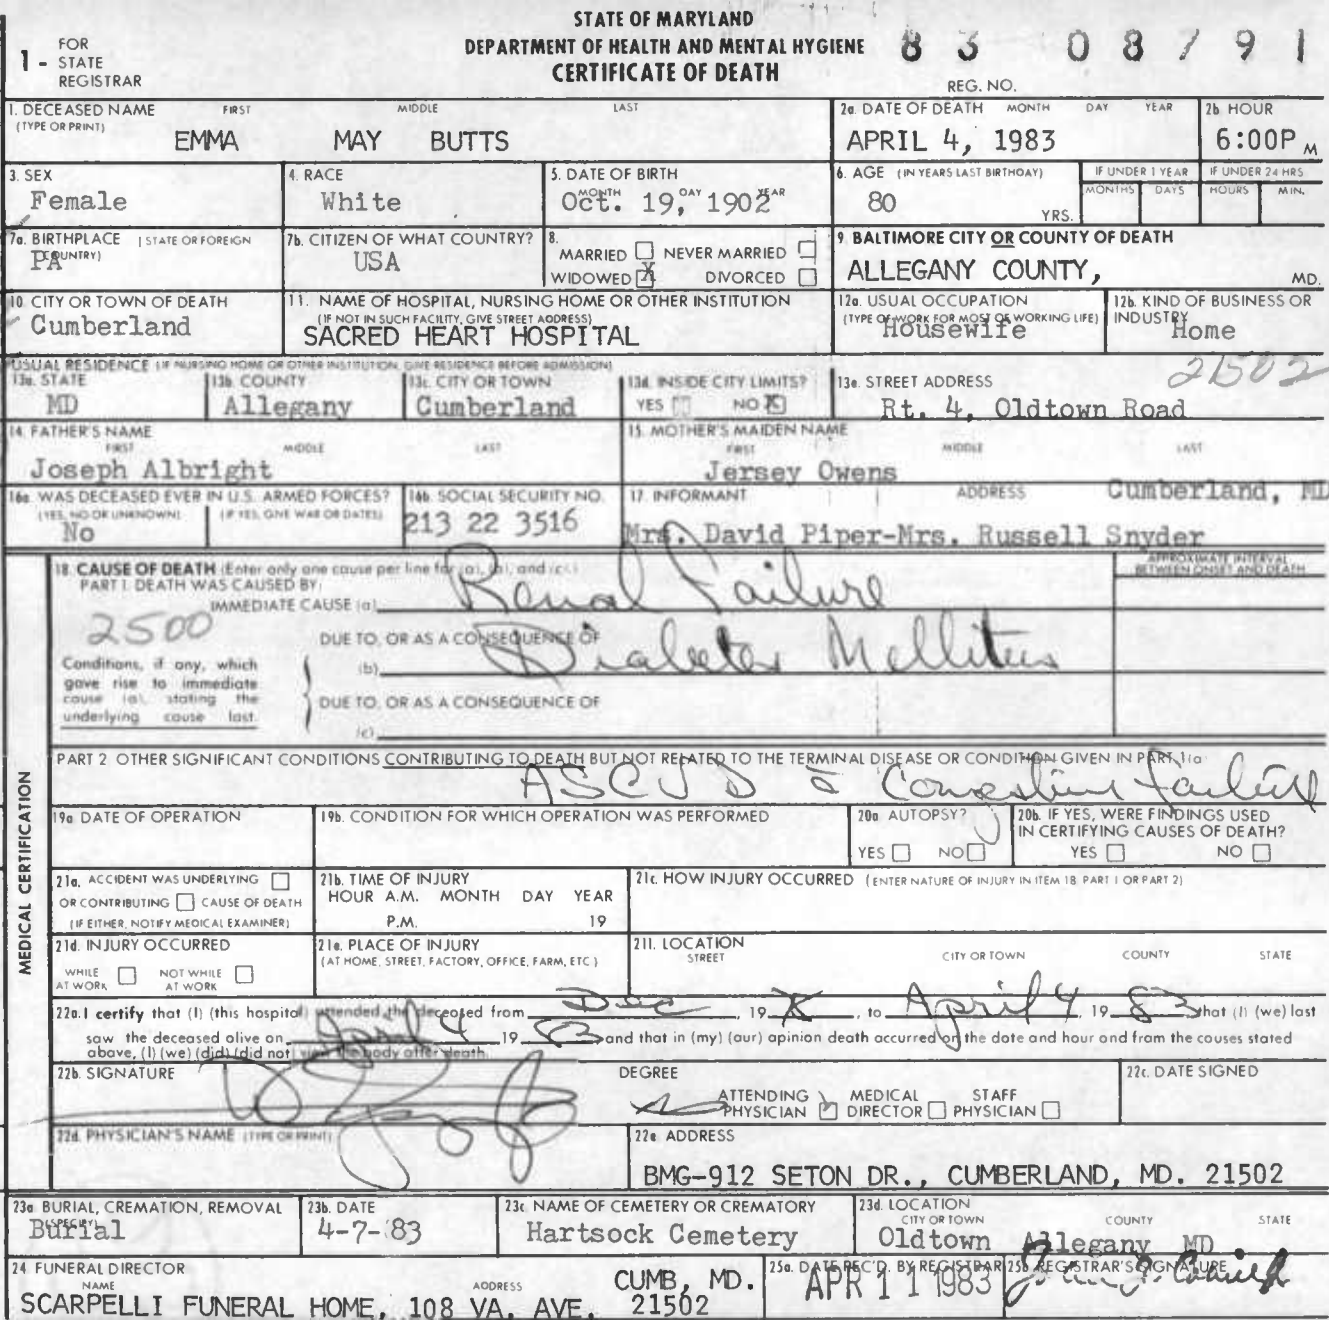 STATE OF MARYLAND
DEPARTMENT OF HEALTH AND MENTAL HYGIENE
CERTIFICATE OF DEATH
1 - FOR STATE REGISTRAR
83 08791
REG. NO.
1. DECEASED NAME FIRST MIDDLE LAST
(TYPE OR PRINT)
EMMA MAY BUTTS
2a. DATE OF DEATH MONTH DAY YEAR
APRIL 4, 1983
2b. HOUR
6:00P M
3. SEX
Female
4. RACE
White
5. DATE OF BIRTH
MONTH DAY YEAR
Oct. 19, 1902
6. AGE (IN YEARS LAST BIRTHDAY)
80 YRS.
IF UNDER 1 YEAR
MONTHS DAYS
IF UNDER 24 HRS
HOURS MIN.
7a. BIRTHPLACE (STATE OR FOREIGN COUNTRY)
PA
7b. CITIZEN OF WHAT COUNTRY?
USA
8.
MARRIED NEVER MARRIED
WIDOWED X DIVORCED
9. BALTIMORE CITY OR COUNTY OF DEATH
ALLEGANY COUNTY, MD.
10. CITY OR TOWN OF DEATH
Cumberland
11. NAME OF HOSPITAL, NURSING HOME OR OTHER INSTITUTION
(IF NOT IN SUCH FACILITY, GIVE STREET ADDRESS)
SACRED HEART HOSPITAL
12a. USUAL OCCUPATION
(TYPE OF WORK FOR MOST OF WORKING LIFE)
Housewife
12b. KIND OF BUSINESS OR INDUSTRY
Home
USUAL RESIDENCE (IF NURSING HOME OR OTHER INSTITUTION, GIVE RESIDENCE BEFORE ADMISSION)
13a. STATE
MD
13b. COUNTY
Allegany
13c. CITY OR TOWN
Cumberland
13d. INSIDE CITY LIMITS?
YES NO X
13e. STREET ADDRESS
21502
Rt. 4, Oldtown Road
14. FATHER'S NAME
FIRST MIDDLE LAST
Joseph Albright
15. MOTHER'S MAIDEN NAME
FIRST MIDDLE LAST
Jersey Owens
16a. WAS DECEASED EVER IN U.S. ARMED FORCES?
(YES, NO OR UNKNOWN) (IF YES, GIVE WAR OR DATES)
No
16b. SOCIAL SECURITY NO.
213 22 3516
17. INFORMANT ADDRESS Cumberland, MD
Mrs. David Piper-Mrs. Russell Snyder
18. CAUSE OF DEATH (Enter only one cause per line for (a), (b), and (c).)
APPROXIMATE INTERVAL BETWEEN ONSET AND DEATH
PART 1. DEATH WAS CAUSED BY:
IMMEDIATE CAUSE (a) Renal Failure
2500
DUE TO, OR AS A CONSEQUENCE OF
(b) Diabetes Mellitus
Conditions, if any, which gave rise to immediate cause (a), stating the underlying cause last.
DUE TO, OR AS A CONSEQUENCE OF
(c)
PART 2 OTHER SIGNIFICANT CONDITIONS CONTRIBUTING TO DEATH BUT NOT RELATED TO THE TERMINAL DISEASE OR CONDITION GIVEN IN PART 1(a)
ASCVD c Congestive Failure
MEDICAL CERTIFICATION
19a. DATE OF OPERATION
19b. CONDITION FOR WHICH OPERATION WAS PERFORMED
20a. AUTOPSY?
YES NO
20b. IF YES, WERE FINDINGS USED IN CERTIFYING CAUSES OF DEATH?
YES NO
21a. ACCIDENT WAS UNDERLYING
OR CONTRIBUTING CAUSE OF DEATH
(IF EITHER, NOTIFY MEDICAL EXAMINER)
21b. TIME OF INJURY
HOUR A.M. MONTH DAY YEAR
P.M. 19
21c. HOW INJURY OCCURRED (ENTER NATURE OF INJURY IN ITEM 18, PART 1 OR PART 2)
21d. INJURY OCCURRED
WHILE AT WORK NOT WHILE AT WORK
21e. PLACE OF INJURY
(AT HOME, STREET, FACTORY, OFFICE, FARM, ETC.)
21f. LOCATION
STREET CITY OR TOWN COUNTY STATE
22a. I certify that (I) (this hospital) attended the deceased from Dec, 19, to April 4, 19 83 that (I) (we) last
saw the deceased alive on April 4 19 83 and that in (my) (our) opinion death occurred on the date and hour and from the causes stated
above, (I) (we) (did) (did not) view the body after death.
22b. SIGNATURE
DEGREE
ATTENDING PHYSICIAN MEDICAL DIRECTOR STAFF PHYSICIAN
22c. DATE SIGNED
22d. PHYSICIAN'S NAME (TYPE OR PRINT)
22e. ADDRESS
BMG-912 SETON DR., CUMBERLAND, MD. 21502
23a. BURIAL, CREMATION, REMOVAL (SPECIFY)
Burial
23b. DATE
4-7-83
23c. NAME OF CEMETERY OR CREMATORY
Hartsock Cemetery
23d. LOCATION
CITY OR TOWN COUNTY STATE
Oldtown Allegany MD
24 FUNERAL DIRECTOR
NAME ADDRESS
CUMB, MD.
SCARPELLI FUNERAL HOME, 108 VA. AVE. 21502
25a. DATE REC'D. BY REGISTRAR
APR 11 1983
25b. REGISTRAR'S SIGNATURE